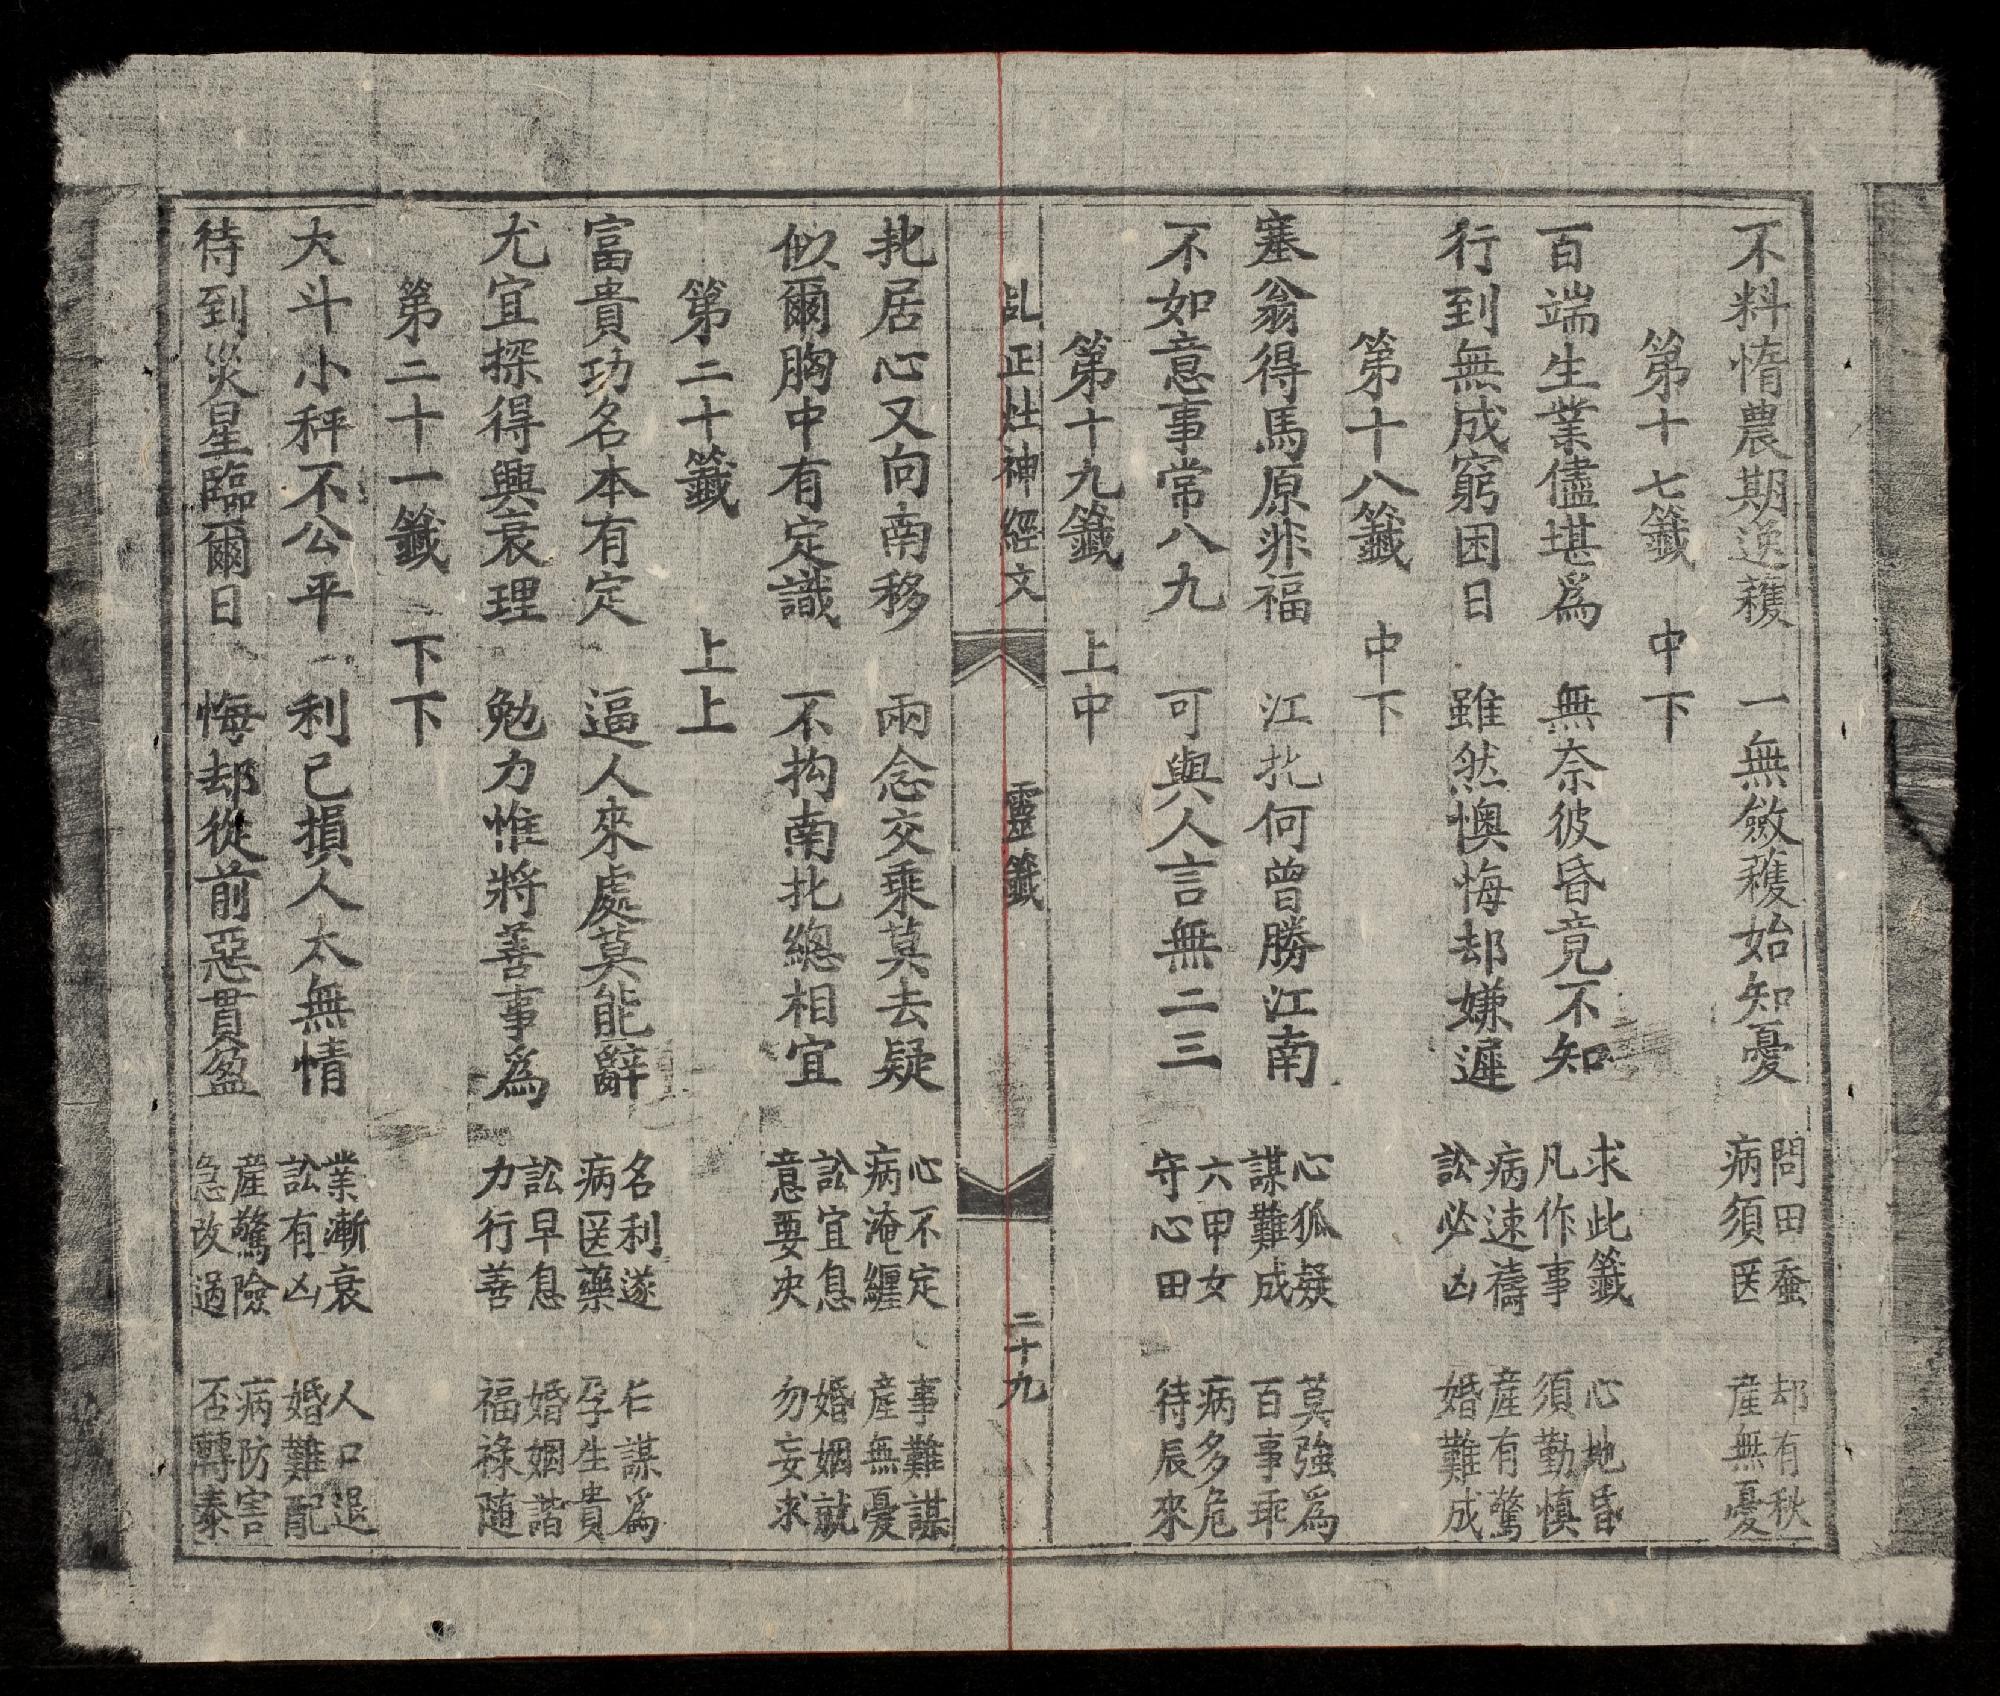 不料惰農期逸穫　一無斂穫始知憂　問田蚕　却有秋
病須医　産無憂
第十七籤　中下
百端生業儘堪爲　無奈彼昏竟不知　求此籤　心地昏
凡作事　須勤慎
行到無成窮困日　雖然懊悔却嫌遲　病速禱　産有驚
訟必凶　婚難成
第十八籤　中下
塞翁得馬原非福　江北何曾勝江南　心狐疑　莫強爲
謀難成　百事乖
不如意事常八九　可與人言無二三　六甲女　病多危
守心田　待辰來
第十九籤　上中
乩正灶神經文　靈籤　二十九
北居心又向南移　兩念交乘莫去疑　心不定　事難謀
病淹纏　產無憂
似爾胸中有定識　不拘南北總相宜　訟宜息　婚姻就
意要央　勿妄求
第二十籤　上上
富貴功名本有定　逼人來處莫能辭　名利遂　仁謀爲
病医藥　孕生貴
尤宜探得興衰理　勉力惟將善事爲　訟早息　婚姻諧
力行善　福祿隨
第二十一籤　下下
大斗小秤不公平　利己損人太無情　業漸衰　人口退
訟有凶　婚難配
待到災星臨爾日　悔却從前惡貫盈　産驚險　病防害
急改過　否轉泰